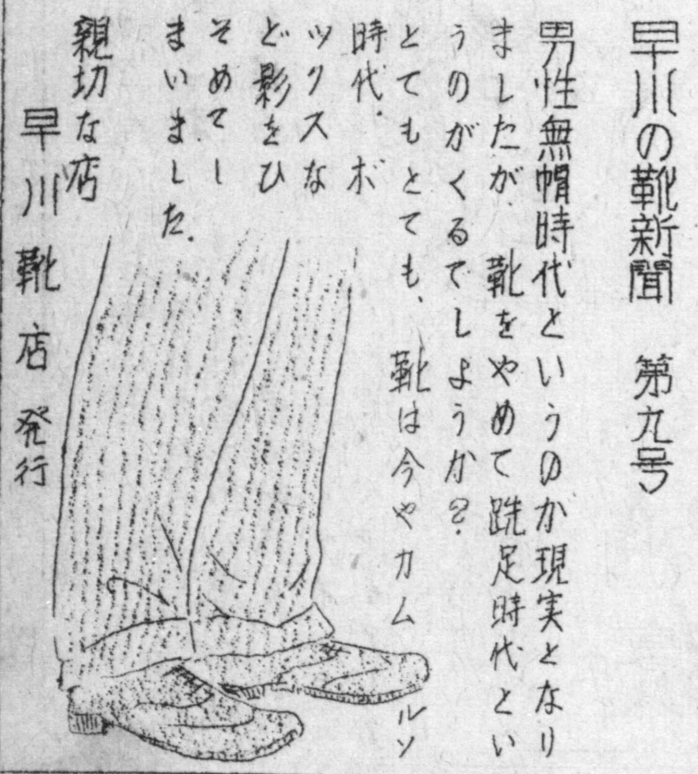 早川の靴新聞　第九号
男性無帽時代というのが現実となり
ましたが　靴をやめて跣足時代とい
うのがくるでしようか？
とてもとても、　靴は今やカムルソ
時代．ボ
ツクスな
ど影をひ
そめてし
まいました．
親切な店
早川靴店発行